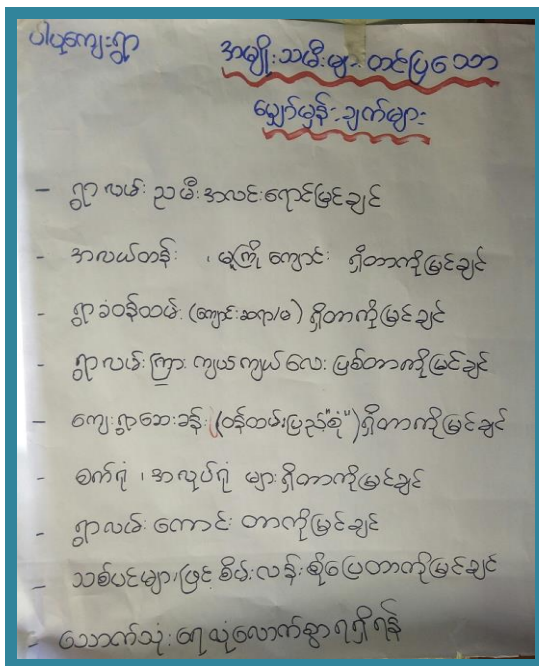 ပါပုကျေးရွာ
အမျိုးသမီးများ တင်ပြသော
မျှော်မှန်းချက်များ
- ရွာလမ်းညမီးအလင်းရောင်မြင်ချင်
- အလယ်တန်း ၊ မူကြိုကျောင်း ရှိတာကိုမြင်ချင်
- ရွာခံဝန်ထမ်း (ကျောင်းဆရာ/မ) ရှိတာကိုမြင်ချင်
- ရွာလမ်းကြား ကျယ်ကျယ်လေး ဖြစ်တာကိုမြင်ချင်
- ကျေးရွာဆေးခန်း (ဝန်ထမ်းပြည့်"စုံ") ရှိတာကိုမြင်ချင်
- စက်ရုံ ၊ အလုပ်ရုံ များရှိတာကိုမြင်ချင်
- ရွာလမ်းကောင်းတာကိုမြင်ချင်
- သစ်ပင်များဖြင့် စိမ်းလန်းစိုပြေတာကိုမြင်ချင်
- သောက်သုံးရေလုံလောက်စွာရရှိရန်